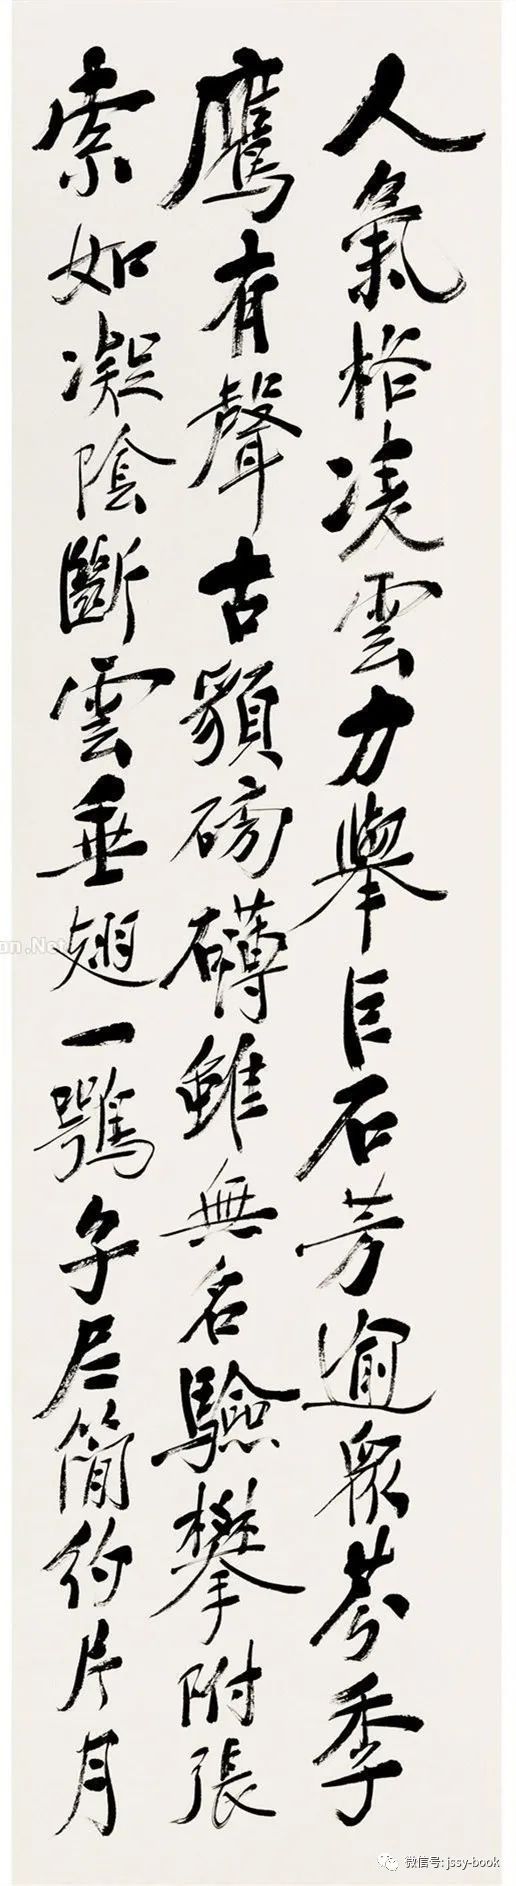 人氣格凌雲力舉巨石芳逾衆芬季
鷹有聲古貌磅礴雖無名驗攀附張
索如凝陰斷雲垂翅一鶚子居簡約片月
微信号: jssy-book